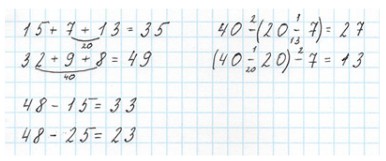 15+7+13=35
20
32+9+8=49
40
48-15=33
48-25=23
2 1
40-(20-7)=27
13
1 2
(40-20)-7=13
20